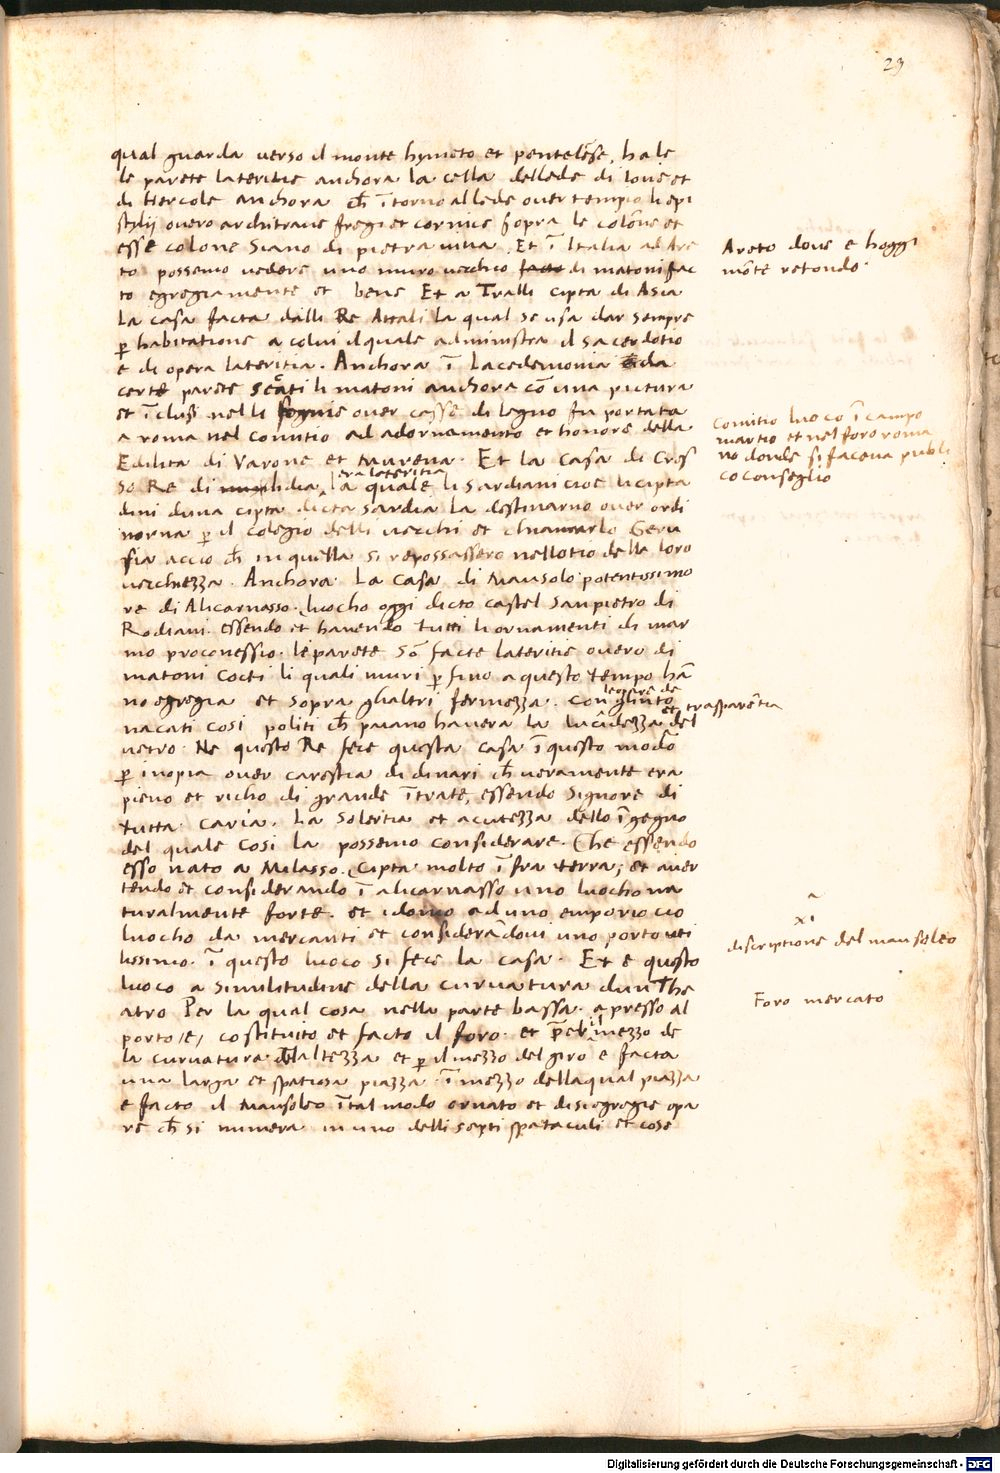 23
qual guarda verso il monte hymeto et pentelese, ha le
le parete lateritie anchora la cella dellede di Iove et
di Hercole anchora ch ī torno allede over tempio li epi
stylij overo architrave fregi et cornice sopra le colōne et
esse colone siano di pietra viva. Et ī Italia ad Are
to possemo vedere uno muro vecchio facto di matoni fac
to egregiamente et bene Et a Tralli cipta di Asia
La casa facta dalli Re Attali la qual se usa dar sempre
p habitatione a colui il quale administra il sacerdotio
e di opera lateritia. Anchora ī Lacedemonia da
certe parete secati li matoni anchora cō una pictura
et ī clusi nelli over casse di legno fu portata
a roma nel comitio ad adornamento et honore della
Edilita di Varone et Murena. Et la casa di Cres
era lateritia
so Re di lidia, la quale li Sardiani cioe li cipta
dini duna cipta dicta sardia la destinarno over ordi
norna p il colegio delli vecchi et chiamarlo Geru
sia accio ch in quella si repossassero nellotio della loro
vecchiezza. Anchora La casa di Mausolo potentissimo
re di Alicarnasso. luocho oggi dicto castel Sanpietro di
Rodiani. essendo et havendo tutti li ornamenti di mar
mo proconessio. le parete sō facte lateritie overo di
matoni cocti li quali muri p fino a questo tempo hā
no egregia et sopra ghaltri fermezza. con
leggere de
et trasparētia
nacati cosi politi ch paiano havera la lucidezza del
vetro. Ne questo Re fece questa casa ī questo modo
p inopia over carestia di dinari ch veramente era
pieno et richo di grande ītrate, essendo Signore di
tutta Caria. La solertia et acutezza dello īgegno
del quale cosi la possemo considerare. Che essendo
esso nato a Milasso. Cipta molto ī fra terra; et aver
tendo et considerando ī alicarnasso uno luocho na
turalmente forte. et idoneo ad uno emporio cio
luocho da mercanti et considerādovi uno porto uti
lissimo. ī questo luoco si fece la casa. Et e questo
luoco a similitudine della curvatura dun the
atro Per la qual cosa nella parte bassa apresso al
porto /e/ costituito et facto il foro. et p mezzo de
la curvatura dellaltezza et p il mezzo del giro e facta
una larga et spatiosa piazza. ī mezzo della qual piazza
e facto il Mausoleo ī tal modo ornato et disi egregie ope
re ch si numera in uno delli septi spetaculi et cose
Areto dove e hoggi
mōte retondo.
Comitio luoco ī campo
martio et nel foro roma
no donde si faceva publi
co conseglio
xi
discriptione del mausoleo
Foro mercato
Digitalisierung gefördert durch die Deutsche Forschungsgemeinschaft - DFG